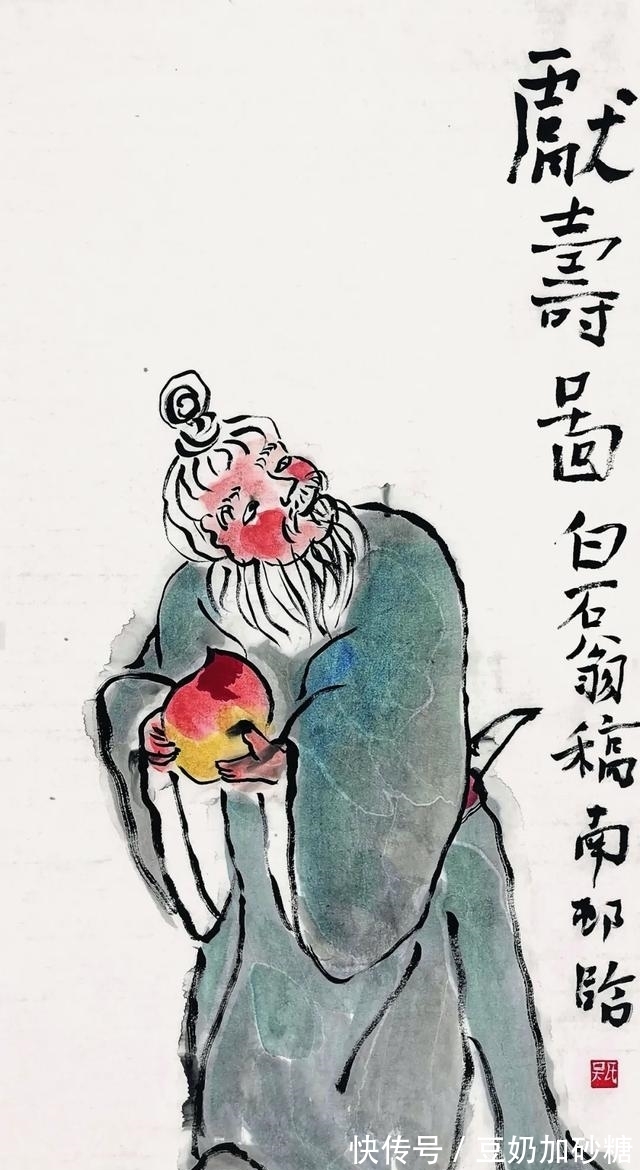 獻壽圖 白石翁稿 南邨臨
吴氏
快传号 / 豆奶加砂糖